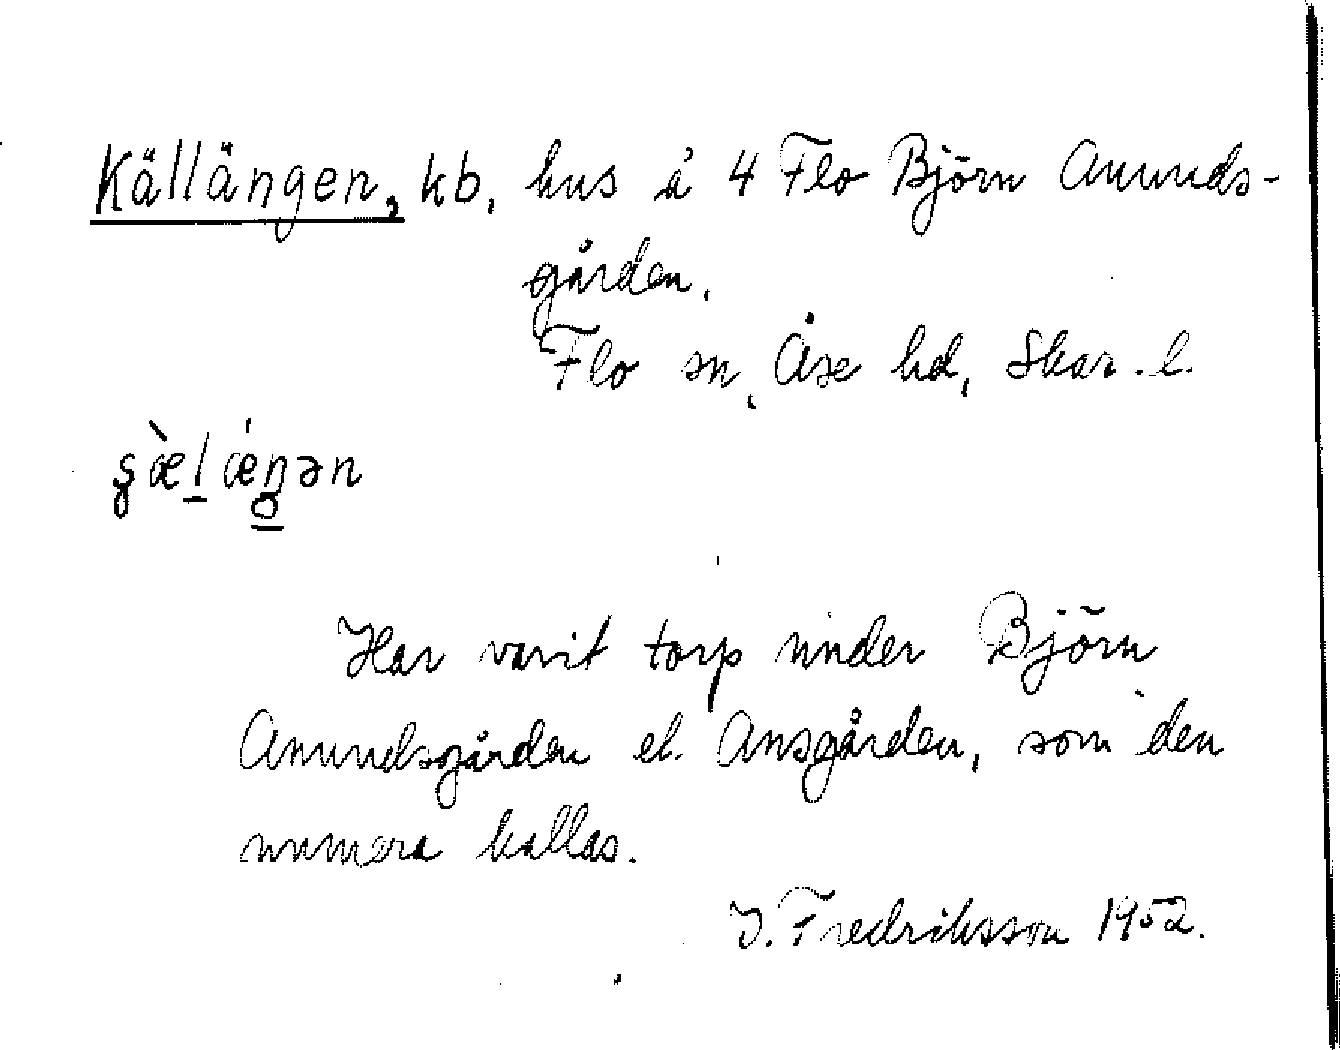 Källängen, kb, hus å 4 Flo Björn Anunds-
gården.
Flo sn, Åse hd, Skar. l.
s̥æ̀l̠ǽŋən
Har varit torp under Björn
Anundsgården el. Ansgården, som den
numera kallas.
J. Fredriksson 1952.